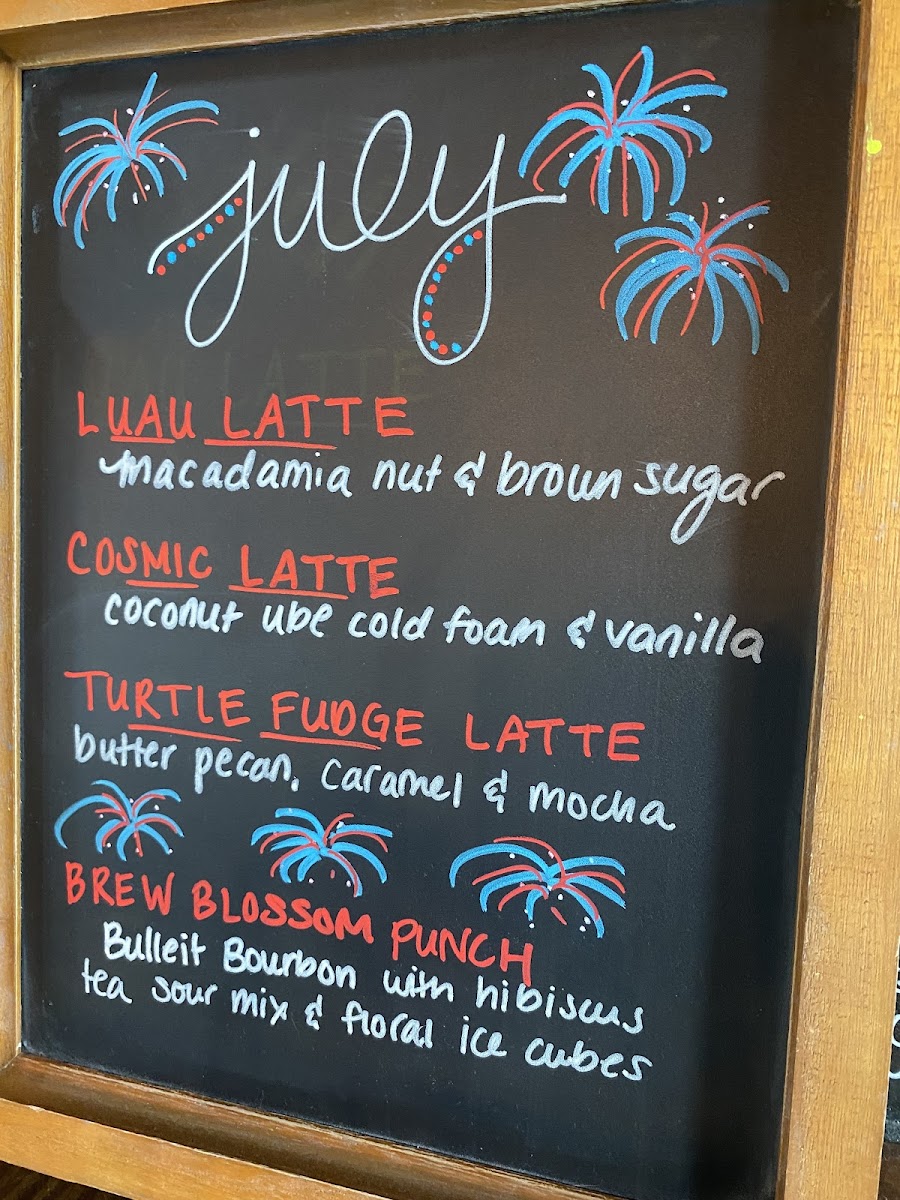 july
LUAU LATTE
macadamia nut & brown sugar
COSMIC LATTE
coconut ube cold foam & vanilla
TURTLE FUDGE LATTE
butter pecan, caramel & mocha
BREW BLOSSOM PUNCH
Bulleit Bourbon with hibiscus
tea sour mix & floral ice cubes